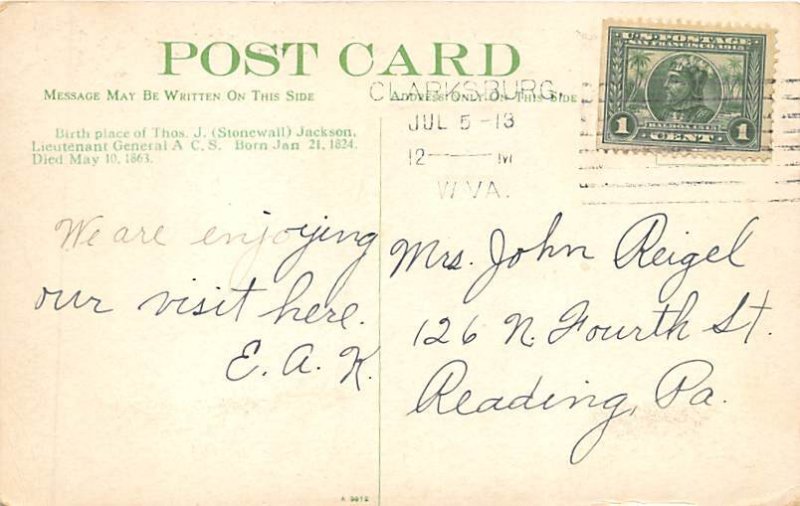 POST CARD
MESSAGE MAY BE WRITTEN ON THIS SIDE
ADDRESS ONLY ON THIS SIDE
Birth place of Thos. J. (Stonewall) Jackson,
Lieutenant General A C. S. Born Jan 21, 1824.
Died May 10, 1863.
CLARKSBURG,
JUL 5-13
12 — M
W.VA.
U.S. POSTAGE
SAN FRANCISCO, 1915
BALBOA 1513
1 CENT 1
We are enjoying
our visit here.
E. A. K.
Mrs. John Reigel
126 N. Fourth St.
Reading, Pa.